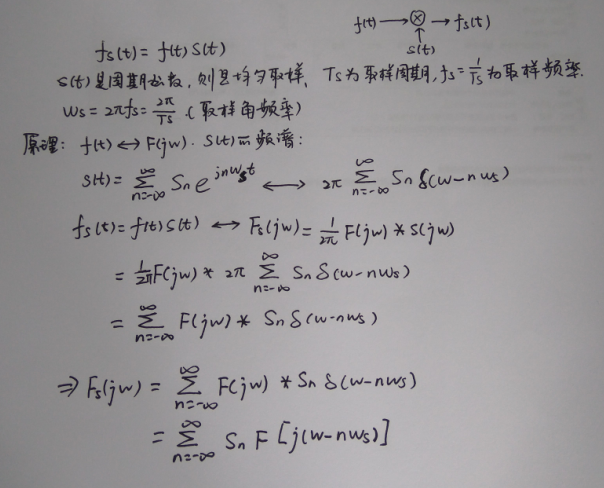 f(t) → ⊗ → fs(t)
↑
s(t)
fs(t) = f(t) s(t)
s(t)是周期函数,则是均匀取样、Ts为取样周期, fs=1/Ts为取样频率.
ws = 2πfs = 2π/Ts (取样角频率)
原理: f(t) ↔ F(jw). s(t)的频谱:
s(t) = ∑_{n=-∞}^{∞} Sn e^{jnwst} ⟷ 2π ∑_{n=-∞}^{∞} Sn δ(w-nws)
fs(t) = f(t) s(t) ↔ Fs(jw) = 1/2π F(jw) * S(jw)
= 1/2π F(jw) * 2π ∑_{n=-∞}^{∞} Sn δ(w-nws)
= ∑_{n=-∞}^{∞} F(jw) * Sn δ(w-nws)
⇒ Fs(jw) = ∑_{n=-∞}^{∞} F(jw) * Sn δ(w-nws)
= ∑_{n=-∞}^{∞} Sn F [j(w-nws)]